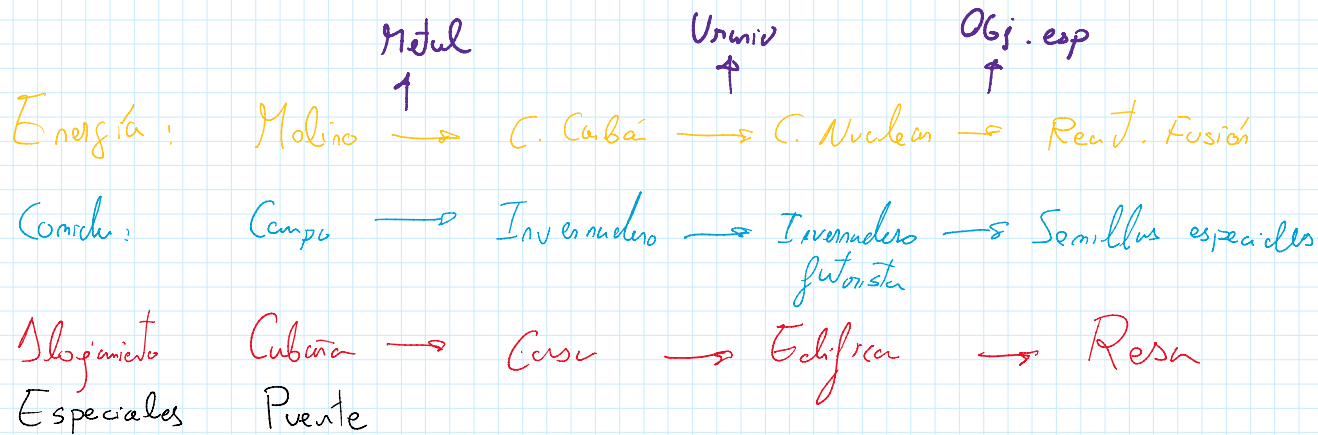 Metal Uranio Obj. esp
Energía: Molino → C. Carbó → C. Nuclear → React. Fusión
Comida: Campo → Invernadero → Invernadero → Semillas especiales
futorista
Alojamiento Cabaña → Casa → Edificio → Resa
Especiales Puente